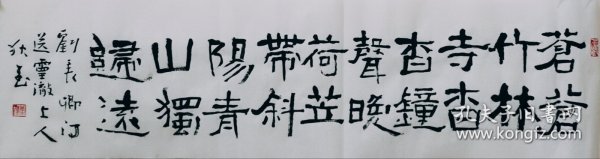 蒼蒼
竹林
寺杳
杳鐘
聲晚
荷笠
帶斜
陽青
山獨
歸遠
劉長卿詩
送靈澈上人
孔夫子旧书网
kongfz.com